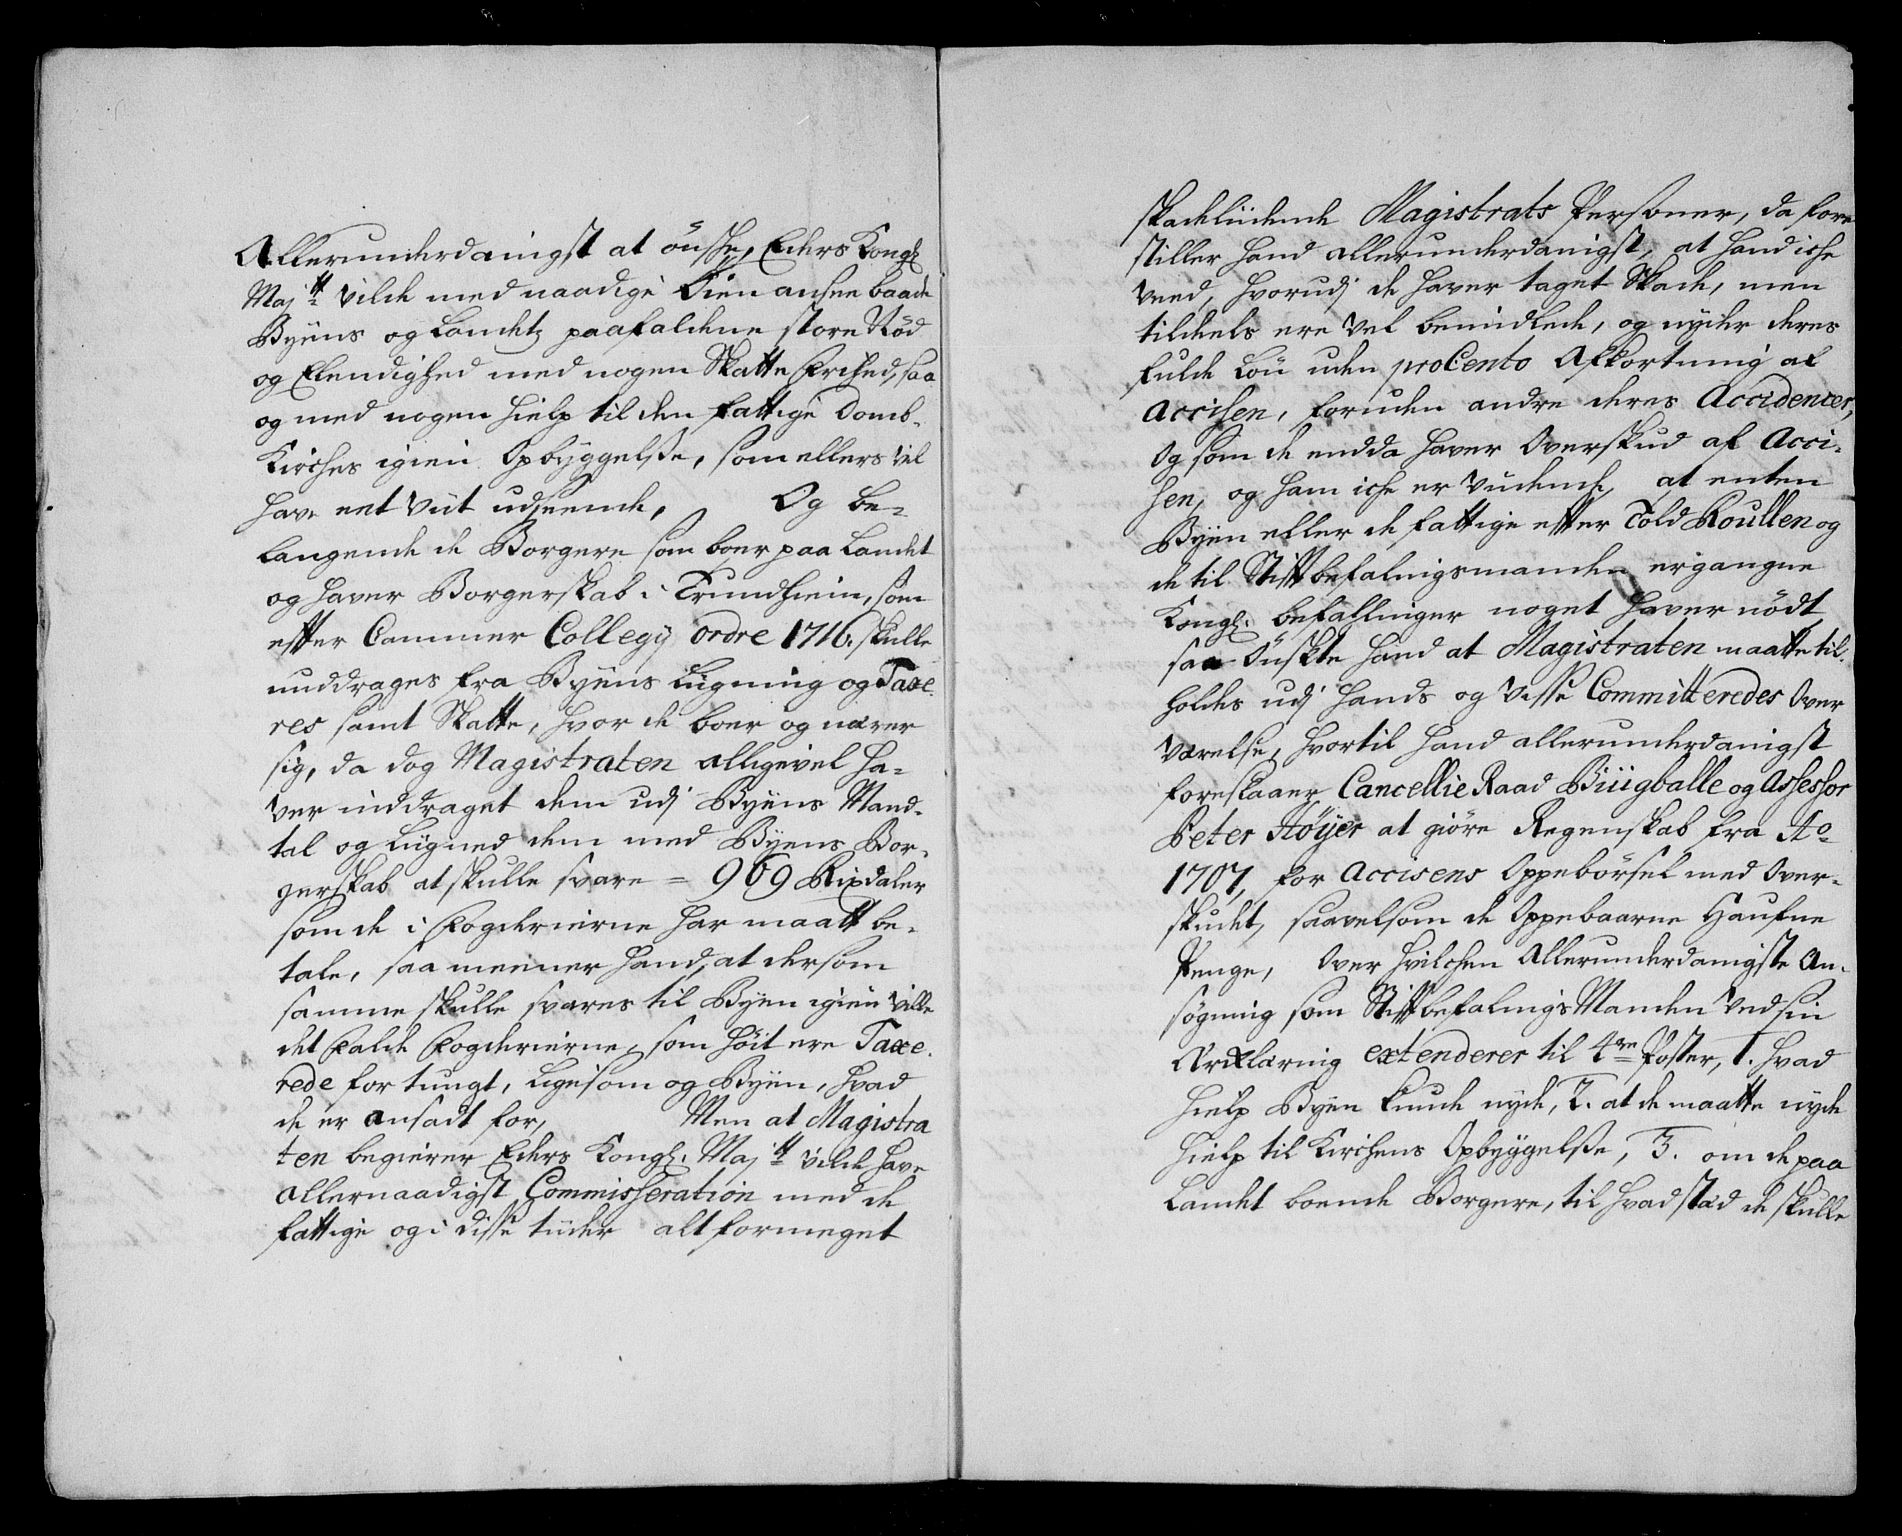 Allerunderdanigst at önske, Eders Kongl
Maj.tt vilde med naadige Öien ansee baade
Byens og Landetz paafaldene store Nöd
og Elendighed med nogen Skatte Frihed, saa
og med nogen Hielp til den fattige Domb-
Kirches igien Opbyggelsse, som ellers vil
have eet viit udseende, Og be-
langende de Borgere som boer paa Landet
og haver Borgerskab i Trundhiem, som
efter Cammer Collegij ordre 1716. skulle
unddrages fra Byens Ligning og Taxe-
res samt Skatte, hvor de boer og nærer
sig, da dog Magistraten alligevel ha-
ver inddraget dem udj Byens Mand-
tal og Ligned dem med Byens Bor-
gerskab at skulle svare = 969 Rixdaler
som de i Fogderierne har maatt be-
tale, saa meener hand, at dersom
samme skulle svares til Byen igien ville
det falde Fogderierne, som höit ere Taxe-
rede for tungt, ligesom og Byen, hvad
de er ansadt for, Men at Magistra
ten begierer Eders Kongl. Maj.tt vilde have
allernaadigst Commisseration med de
fattige og i disse tiider alt formeget
skadeliidende Magistrats Personer, da fore
stiller hand allerunderdanigst, at hand iche
veed, hvorudj de haver taget Skade, men
tildeels ere vel bemidlede, og nyder deres
fulde Lön uden proCento Afkortning af
Accisen, foruden andre deres Accidencer,
Og som de endda haver Overskud af Acci-
sen, og ham iche er vidende, at enten
Byen eller de fattige efter Told Roullen og
de til Stiftbefalingsmanden ergangne
Kongl. befallinger noget haver nödt
saa Önskte hand at Magistraten maatte til-
holdes udj hands og visse Committeredes Over
værelse, hvortil hand allerunderdanigst
foreslaaer Cancellie Raad Büigballe og Assessor
Peter Höyer at giöre Regenskab fra Ao
1707, for Accisens Oppebörsel med Over-
skudet, saavelsom de Oppebaarne Haufne
Penge, Over hvilchen Allerunderdanigste An-
sögning som Stiftbefalings Manden ved sin
Erklæring extenderer til 4re Poster, 1. hvad
Hielp Byen kunde nyde, 2. at de maatte nyde
Hielp til Kirchens Opbyggelsse, 3. om de paa
Landet boende Borgere, til hvad stæd de skulle